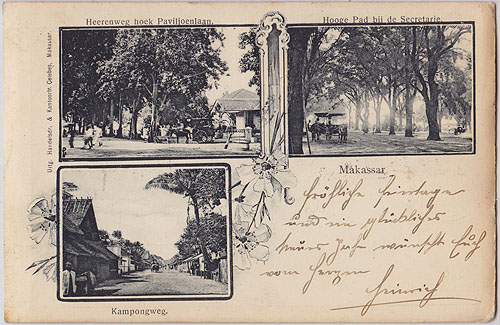 Heerenweg hoek Paviljoenlaan.
Hooge Pad bij de Secretarie.
Uitg. Handelsdr. & Kantoorb. Celebes, Makassar.
Makassar
Fröhliche Feiertage
und ein glückliches
neues Jahr wünscht Euch
vom Herzen
Heinrich
Kampongweg.